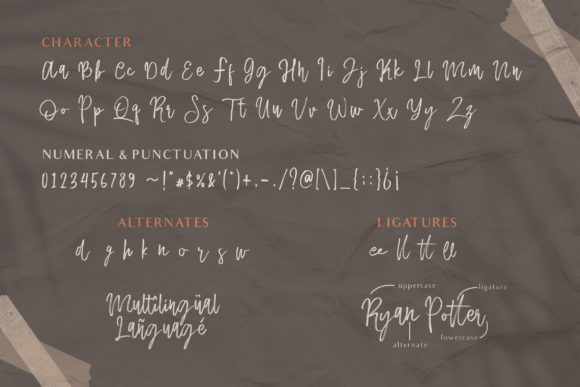 CHARACTER
Aa Bb Cc Dd Ee Ff Gg Hh Ii Jj Kk Ll Mm Nn
Oo Pp Qq Rr Ss Tt Uu Vv Ww Xx Yy Zz
NUMERAL & PUNCTUATION
0123456789 ~!"#$%&'(*)+,-./?@[\]_{:;}¿¡
ALTERNATES
d g h k n o r s w
LIGATURES
ee ll tt ll
Multilingüal
Lañguagé
uppercase
ligature
Ryan Potter
alternate
lowercase